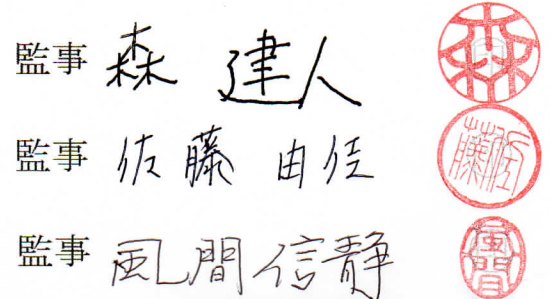 監事 森 建人 森
監事 佐藤 由佳 佐藤
監事 風間信静 風間